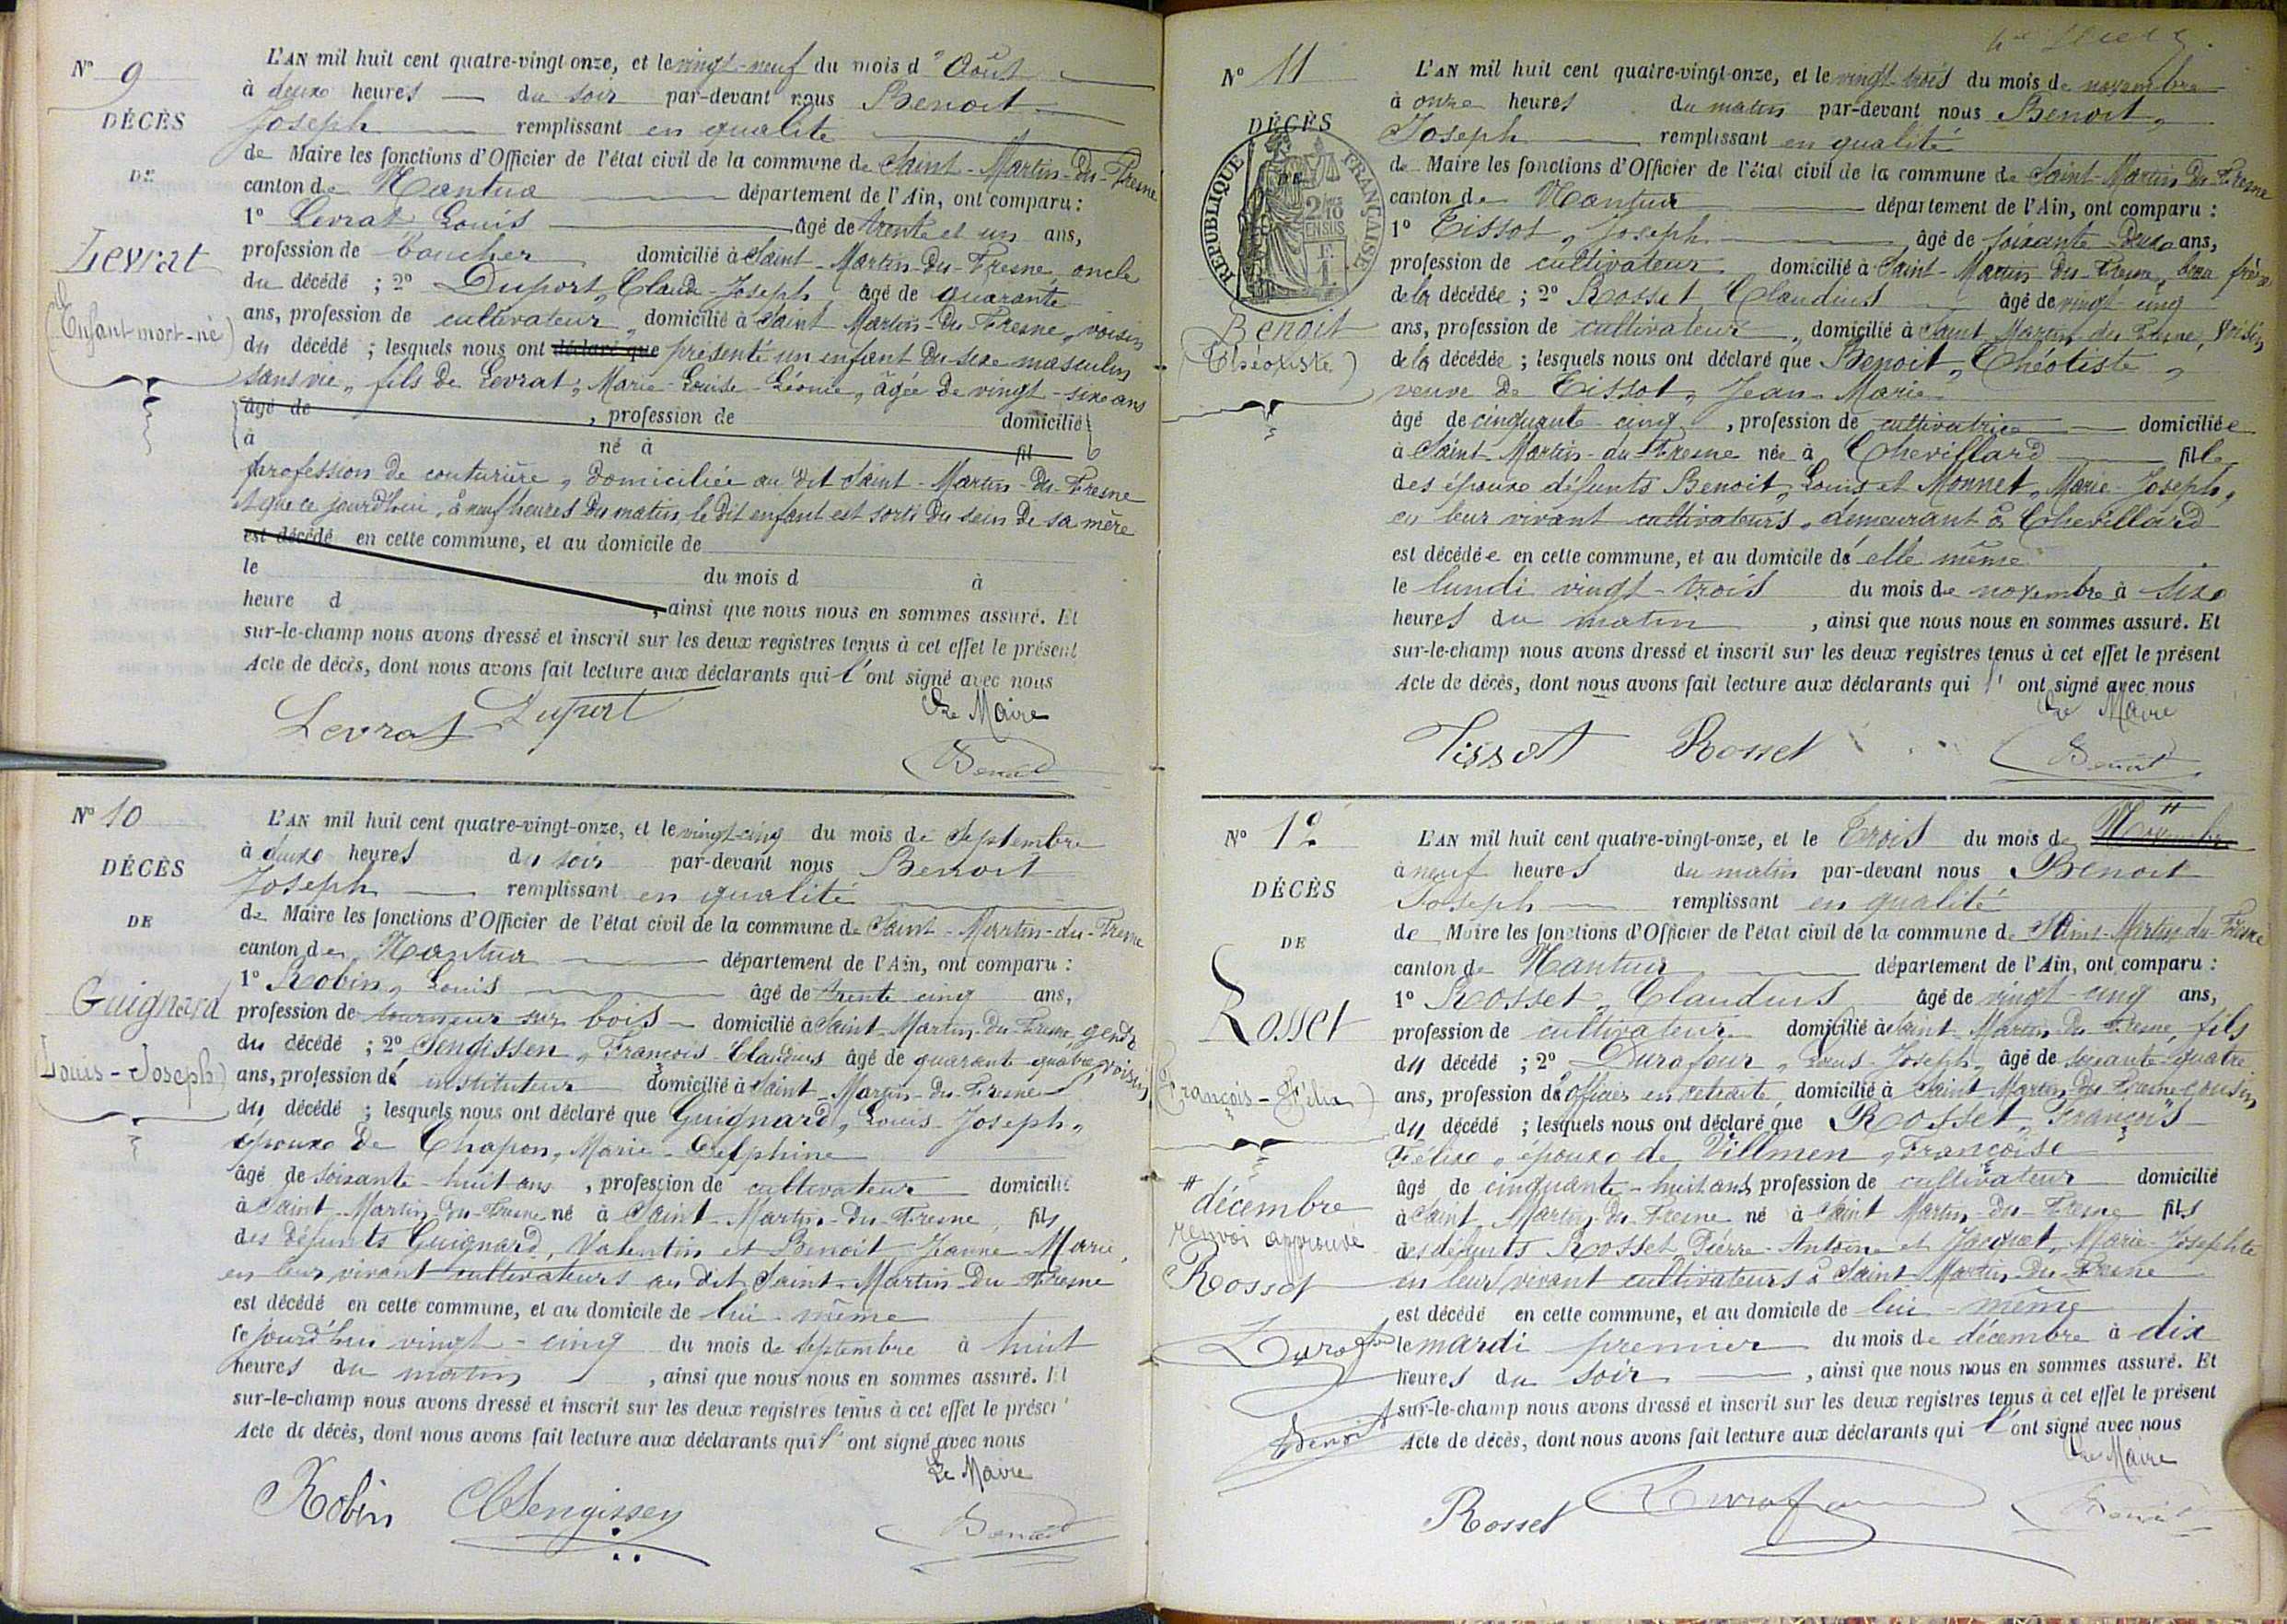 N° 9
DÉCÈS
DE
Levrat
(Enfant mort-né)
L'AN mil huit cent quatre-vingt-onze, et le vingt-neuf du mois d'Août
à deux heures du soir par-devant nous Benoit
Joseph remplissant en qualité
de Maire les fonctions d'Officier de l'état civil de la commune de Saint-Martin-du-Fresne
canton de Nantua département de l'Ain, ont comparu :
1° Levrat Louis âgé de trente et un ans,
profession de boucher domicilié à Saint-Martin-du-Fresne, oncle
du décédé ; 2° Duport, Claude-Joseph âgé de quarante
ans, profession de cultivateur, domicilié à Saint Martin-du-Fresne, voisin
du décédé ; lesquels nous ont déclaré que présenté un enfant du sexe masculin
sans vie, fils de Levrat, Marie-Louise-Léonie, âgée de vingt-six ans
âgé de , profession de domicilié
à né à fil
profession de couturière, domiciliée au dit Saint-Martin-du-Fresne
et que ce jourd'hui, à neuf heures du matin, le dit enfant est sorti du sein de sa mère
est décédé en cette commune, et au domicile de
le du mois d à
heure d , ainsi que nous nous en sommes assuré. Et
sur-le-champ nous avons dressé et inscrit sur les deux registres tenus à cet effet le présent
Acte de décès, dont nous avons fait lecture aux déclarants qui l'ont signé avec nous
Le Maire
Levrat Duport
Benoit
N° 10
DÉCÈS
DE
Guignard
(Louis-Joseph)
L'AN mil huit cent quatre-vingt-onze, et le vingt-cinq du mois de Septembre
à deux heures du soir par-devant nous Benoit
Joseph remplissant en qualité
de Maire les fonctions d'Officier de l'état civil de la commune de Saint-Martin-du-Fresne
canton de Nantua département de l'Ain, ont comparu :
1° Robin, Louis âgé de trente cinq ans,
profession de tourneur sur bois domicilié à Saint-Martin-du-Fresne, gendre
du décédé ; 2° Sengissen, François-Claudius âgé de quarante-quatre, voisin
ans, profession d'instituteur domicilié à Saint-Martin-du-Fresne
du décédé ; lesquels nous ont déclaré que Guignard, Louis-Joseph,
époux de Chapon, Marie-Delphine
âgé de soixante-huit ans, profession de cultivateur domicilié
à Saint-Martin-du-Fresne né à Saint-Martin-du-Fresne, fils
des défunts Guignard, Valentin et Benoit Jeanne-Marie,
en leur vivant cultivateurs au dit Saint-Martin-du-Fresne
est décédé en cette commune, et au domicile de lui-même
le jourd'hui vingt-cinq du mois de septembre à huit
heures du matin , ainsi que nous nous en sommes assuré. Et
sur-le-champ nous avons dressé et inscrit sur les deux registres tenus à cet effet le présent
Acte de décès, dont nous avons fait lecture aux déclarants qui l'ont signé avec nous
Le Maire
Robin CSengissen
Benoit
N° 11
DÉCÈS
DE
RÉPUBLIQUE FRANÇAISE
2/10 EN SUS
Benoit
(Théotiste)
L'AN mil huit cent quatre-vingt-onze, et le vingt-trois du mois de novembre
à onze heures du matin par-devant nous Benoit,
Joseph remplissant en qualité
de Maire les fonctions d'Officier de l'état civil de la commune de Saint-Martin-du-Fresne
canton de Nantua département de l'Ain, ont comparu :
1° Tissot, Joseph âgé de soixante-deux ans,
profession de cultivateur domicilié à Saint-Martin-du-Fresne, beau frère
de la décédée ; 2° Rosset, Claudius âgé de vingt-cinq
ans, profession de cultivateur, domicilié à Saint Martin du Fresne, voisin
de la décédée ; lesquels nous ont déclaré que Benoit, Théotiste,
veuve de Tissot, Jean-Marie
âgé de cinquante-cinq , profession de cultivatrice domiciliée
à Saint-Martin-du-Fresne née à Chevillard fille
des époux défunts Benoit, Louis et Monnet, Marie-Joseph,
en leur vivant cultivateurs, demeurant à Chevillard
est décédée en cette commune, et au domicile d'elle même
le lundi vingt-trois du mois de novembre à six
heures du matin , ainsi que nous nous en sommes assuré. Et
sur-le-champ nous avons dressé et inscrit sur les deux registres tenus à cet effet le présent
Acte de décès, dont nous avons fait lecture aux déclarants qui l'ont signé avec nous
Le Maire
Tissot Rosset
Benoit
N° 12
DÉCÈS
DE
Rosset
(François-Félix)
# décembre
renvoi approuvé
Rosset
Durafour
Benoit
L'AN mil huit cent quatre-vingt-onze, et le Trois du mois de Novembre #
à neuf heures du matin par-devant nous Benoit
Joseph remplissant en qualité
de Maire les fonctions d'Officier de l'état civil de la commune de Saint-Martin-du-Fresne
canton de Nantua département de l'Ain, ont comparu :
1° Rosset, Claudius âgé de vingt-cinq ans,
profession de cultivateur domicilié à Saint-Martin-du-Fresne, fils
du décédé ; 2° Durafour, Louis-Joseph, âgé de soixante-quatre
ans, profession d'officier en retraite, domicilié à Saint-Martin-du-Fresne cousin
du décédé ; lesquels nous ont déclaré que Rosset, François
Félix, époux de Villmen, Françoise
âgé de cinquante-huit ans profession de cultivateur domicilié
à Saint Martin-du-Fresne né à Saint Martin-du-Fresne fils
des défunts Rosset, Pierre-Antoine et Jacquet, Marie-Josephte
en leur vivant cultivateurs à Saint-Martin-du-Fresne
est décédé en cette commune, et au domicile de lui-même
le mardi premier du mois de décembre à dix
heures du soir , ainsi que nous nous en sommes assuré. Et
sur-le-champ nous avons dressé et inscrit sur les deux registres tenus à cet effet le présent
Acte de décès, dont nous avons fait lecture aux déclarants qui l'ont signé avec nous
Le Maire
Rosset Durafour
Benoit